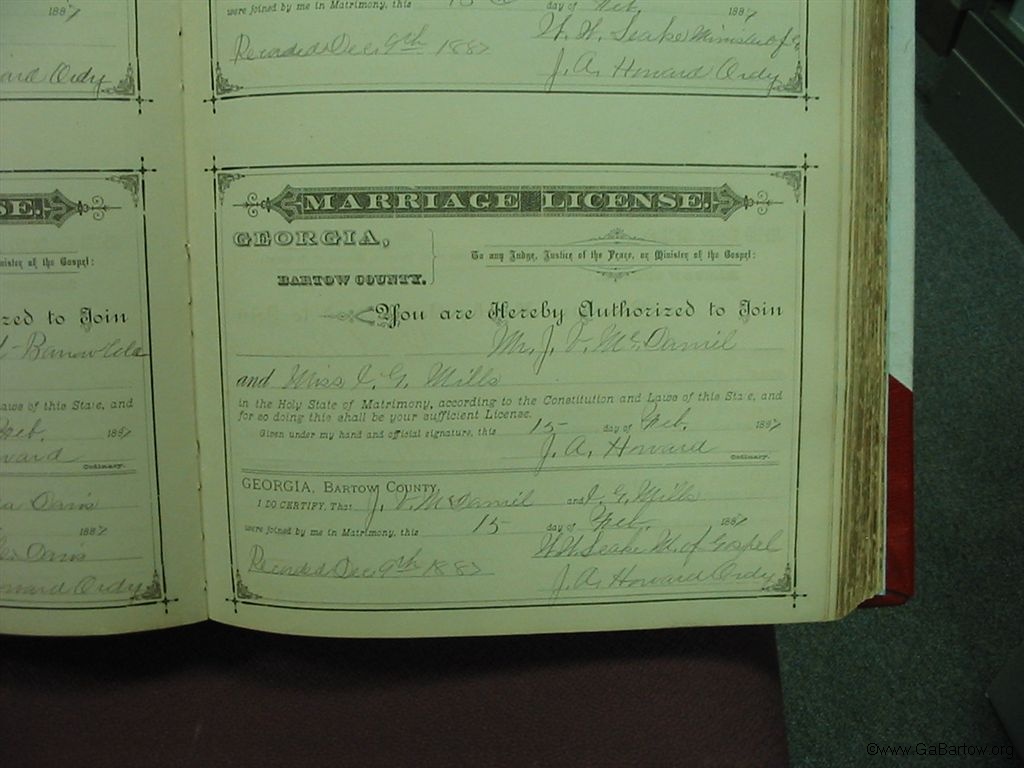 were joined by me in Matrimony, this 15 day of Feb. 1887
Recorded Dec, 9th 1887
W. W. Leake Minister of G
J. A. Howard Ordy
ard Ordy
SE.
inister of the Gospel:
zed to Join
Laws of this State, and
Feb. 1887
ward
Ordinary.
a Davis
1887
Davis
ward Ordy
MARRIAGE LICENSE.
GEORGIA,
BARTOW COUNTY.
To any Judge, Justice of the Peace, or Minister of the Gospel:
You are Hereby Authorized to Join
Mr. J. V. McDaniel
and Miss I. G. Mills
in the Holy State of Matrimony, according to the Constitution and Laws of this State, and
for so doing this shall be your sufficient License.
Given under my hand and official signature, this 15 day of Feb. 1887
J. A. Howard Ordinary.
GEORGIA, BARTOW COUNTY,
I DO CERTIFY, That J. V. McDaniel and I. G. Mills
were joined by me in Matrimony, this 15 day of Feb. 1887
W W Leake M. of Gospel
Recorded Dec, 9th 1887
J. A. Howard Ordy
©www.GaBartow.org